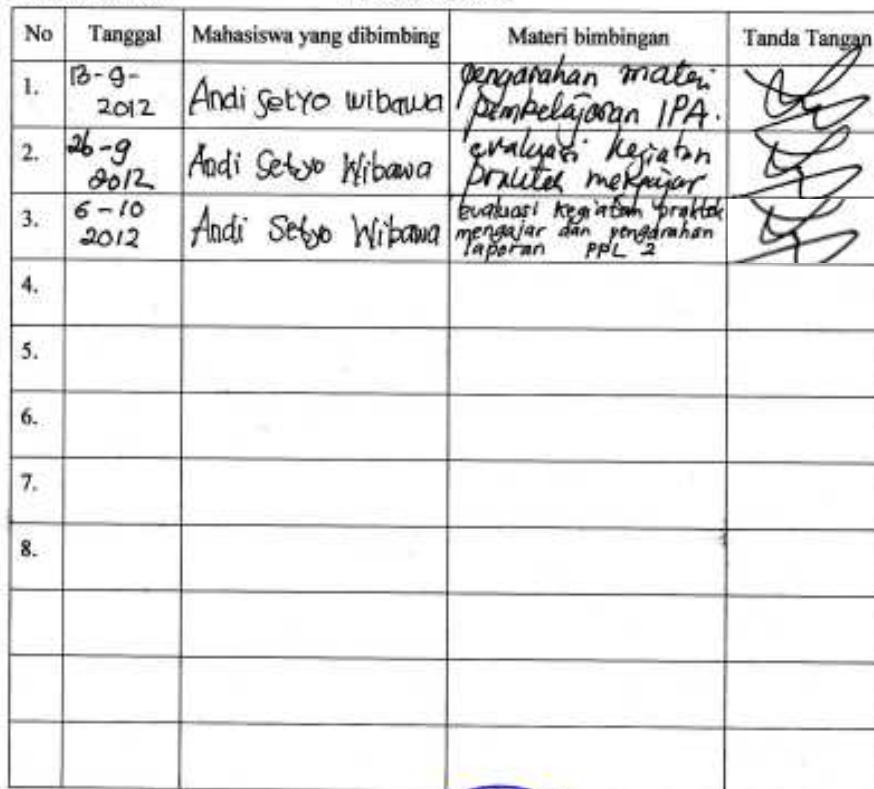 No Tanggal Mahasiswa yang dibimbing Materi bimbingan Tanda Tangan
1. 13-9-2012 Andi Setyo wibawa pengarahan materi pembelajaran IPA.
2. 26-9 2012 Andi Setyo Wibawa evaluasi kegiatan praktek mengajar
3. 6-10 2012 Andi Setyo Wibawa Evaluasi kegiatan praktek mengajar dan pengarahan laporan PPL 2
4.
5.
6.
7.
8.